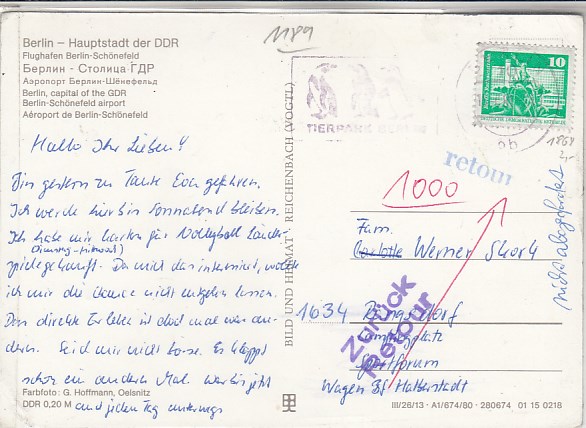 1189
Berlin – Hauptstadt der DDR
Flughafen Berlin-Schönefeld
Берлин - Столица ГДР
Аэропорт Берлин-Шёнефельд
Berlin, capital of the GDR
Berlin-Schönefeld airport
Aéroport de Berlin-Schönefeld
TIERPARK BERLIN
10
DEUTSCHE DEMOKRATISCHE REPUBLIK
1868
2,-
retour
1000
nicht abgefordert
Hallo Ihr Lieben!
Bin gestern zu Tante Eva gefahren.
Ich werde hier bis Sonnabend bleiben.
Ich habe mir Karten für Volleyball Länder-
spiele gekauft. Da mich das interessiert, wollte
ich mir die Chance nicht entgehen lassen.
Das direkte Erleben ist doch mal was an-
deres. Seid mir nicht böse. Es klappt
schon ein anderes Mal. War bis jetzt
auch jeden Tag unterwegs
BILD UND HEIMAT REICHENBACH (VOGTL)
Fam.
Werner Skork
1634 Rangsdorf
Campingplatz
Sportforum
Wagen Halberstadt
Zurück
Retour
Farbfoto: G. Hoffmann, Oelsnitz
DDR 0,20 M
III/26/13 - A1/674/80 - 280674 01 15 0218